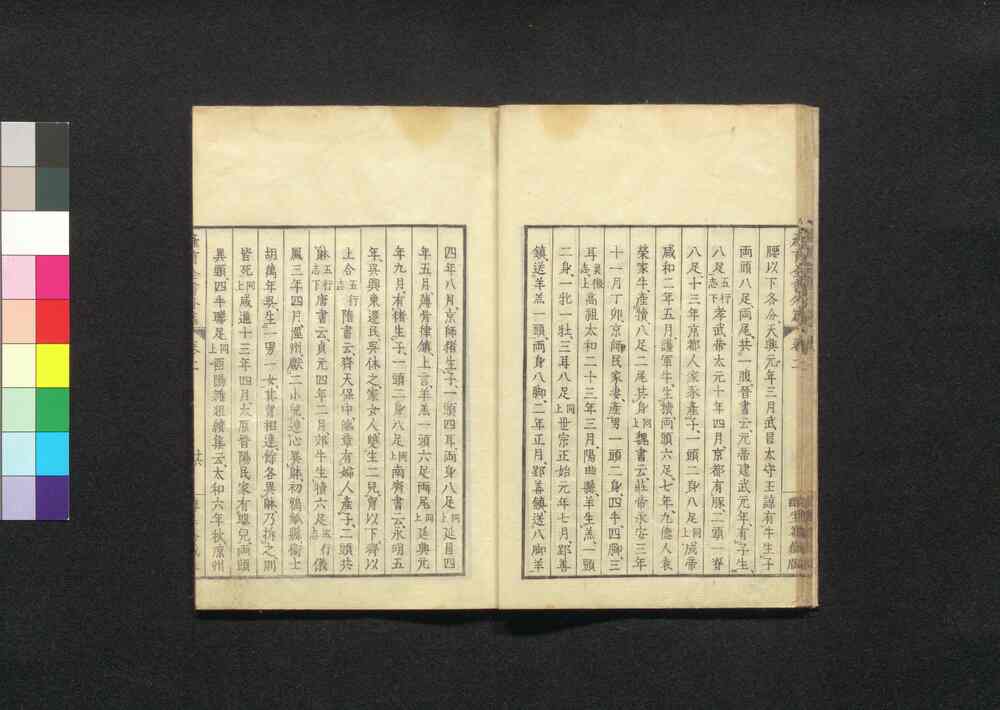 腰以下各分天興元年三月武昌太守王諒有牛生子
兩頭八足兩尾共一腹晉書云元帝建武元年有子生
八足五行志下孝武帝太元十年四月京都有豚一頭二脊
八足十三年京都人家豕產子一頭二身八足同上成帝
咸和二年五月護軍牛生犢兩頭六足七年九德人袁
榮家牛產犢八足二尾共身同上魏書云莊帝永安三年
十一月丁卯京師民家妻產男一頭二身四手四脚三
耳靈徵志上高祖太和二十三年三月陽曲縣羊生羔一頭
二身一牝一牡三耳八足同上世宗正始元年七月鄯善
鎮送羊羔一頭兩身八脚二年正月鄯善鎮送八脚羊
四年八月京師猪生子一頭四耳兩身八足同上延昌四
年五月薄骨律鎮上言羊羔一頭六足兩尾同上延興元
年九月有猪生子一頭二身八足同上南齊書云永明五
年吳興東遷民吳休之家女人雙生二兒胷以下齊以
上合五行志隋書云齊天保中臨漳有婦人產子二頭共
體五行志下唐書云貞元四年二月郊牛生犢六足五行志儀
鳳三年四月涇州獻二小兒連心異體初鶉觚縣衞士
胡萬年吳生一男一女其胷相連餘各異體乃析之則
皆死同上咸通十三年四月太原晉陽民家有嬰兒兩頭
異頸四手聯足同上酉陽雜俎續集云太和六年秋凉州